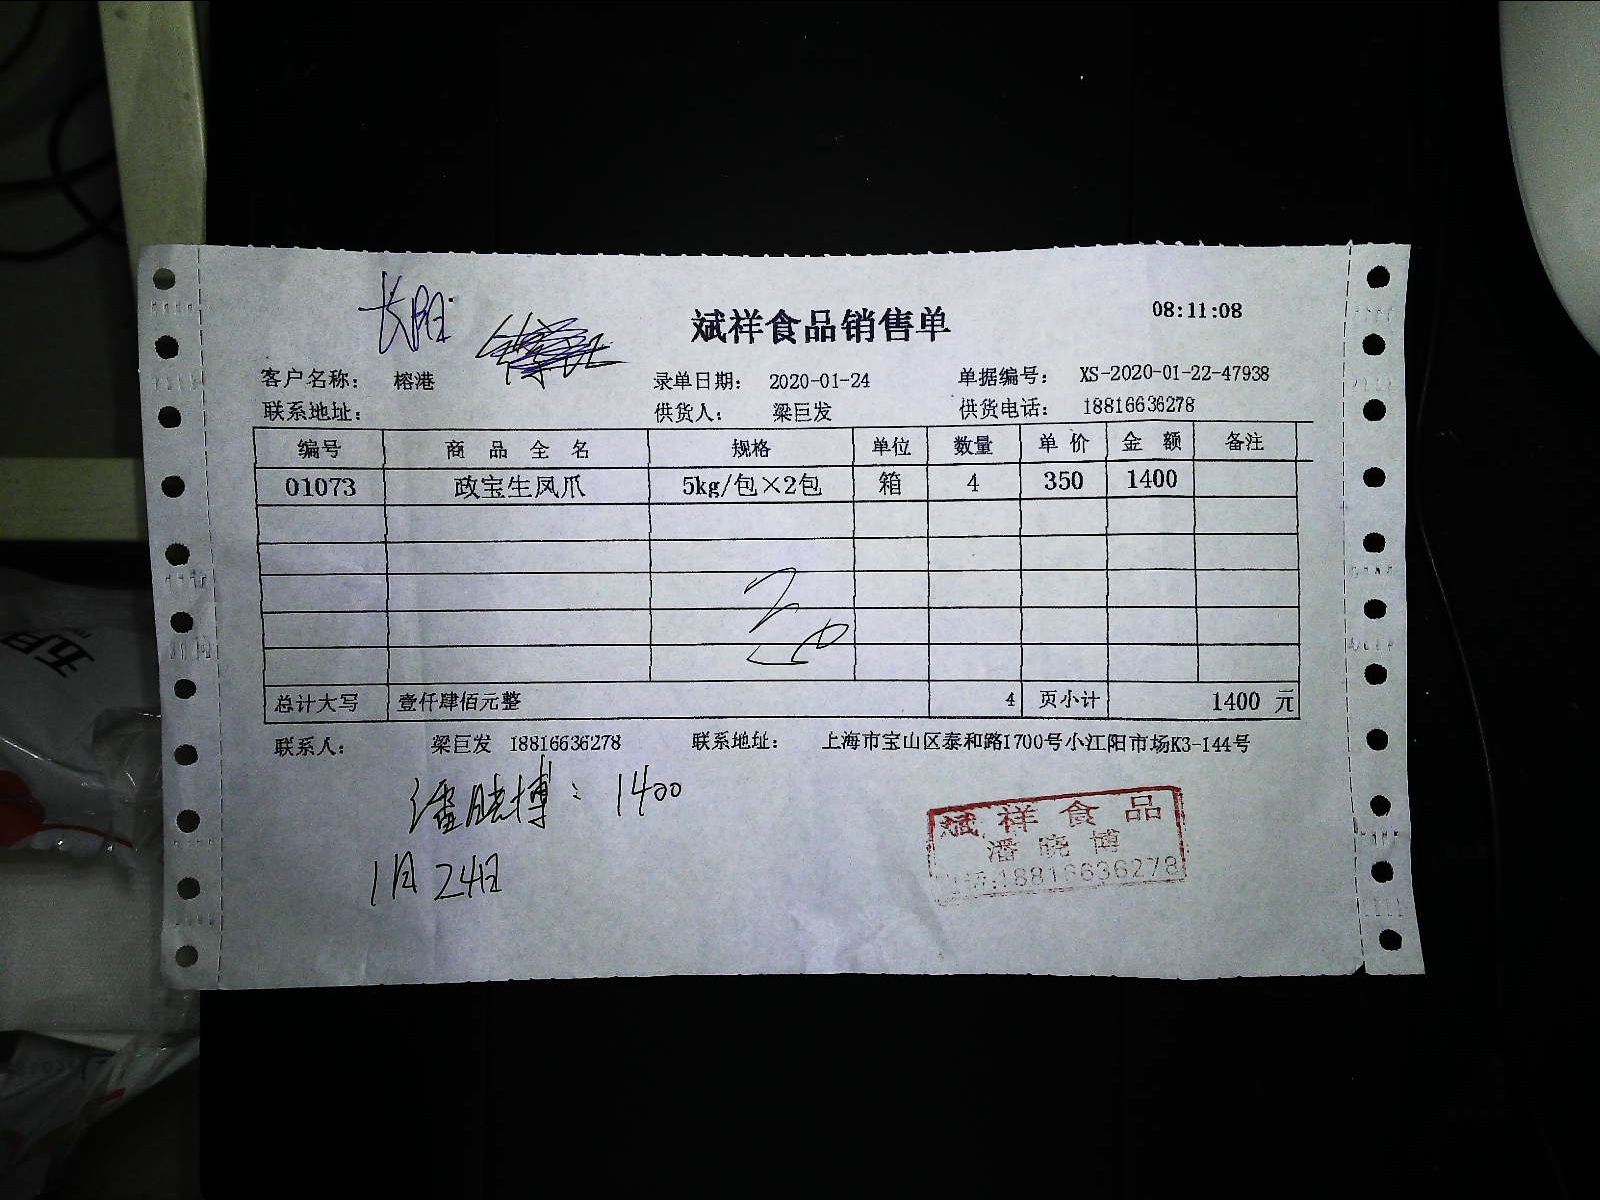 长阳
斌祥食品销售单
08:11:08
客户名称: 榕港 录单日期: 2020-01-24 单据编号: XS-2020-01-22-47938
联系地址: 供货人: 梁巨发 供货电话: 18816636278
编号 商品全名 规格 单位 数量 单价 金额 备注
01073 政宝生凤爪 5kg/包×2包 箱 4 350 1400
总计大写 壹仟肆佰元整 4 页小计 1400 元
联系人: 梁巨发 18816636278 联系地址: 上海市宝山区泰和路1700号小江阳市场K3-144号
潘晓博: 1400
1月24日
斌祥食品
潘晓博
18816636278